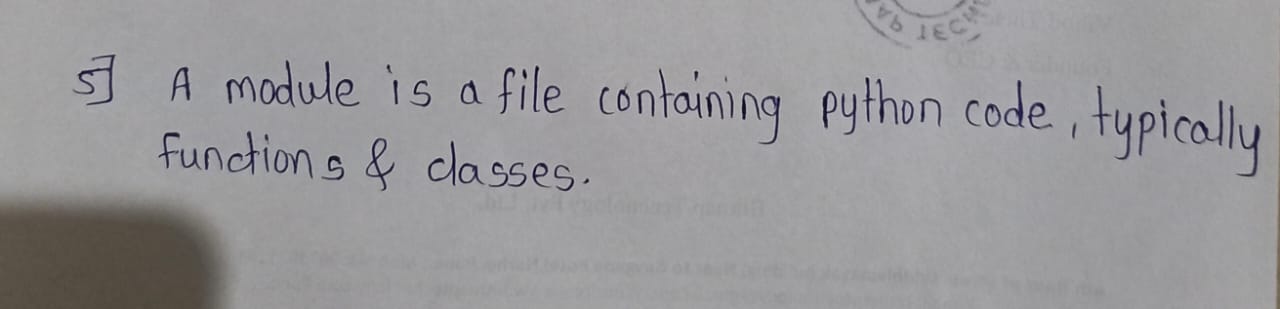 5] A module is a file containing python code, typically
functions & classes.